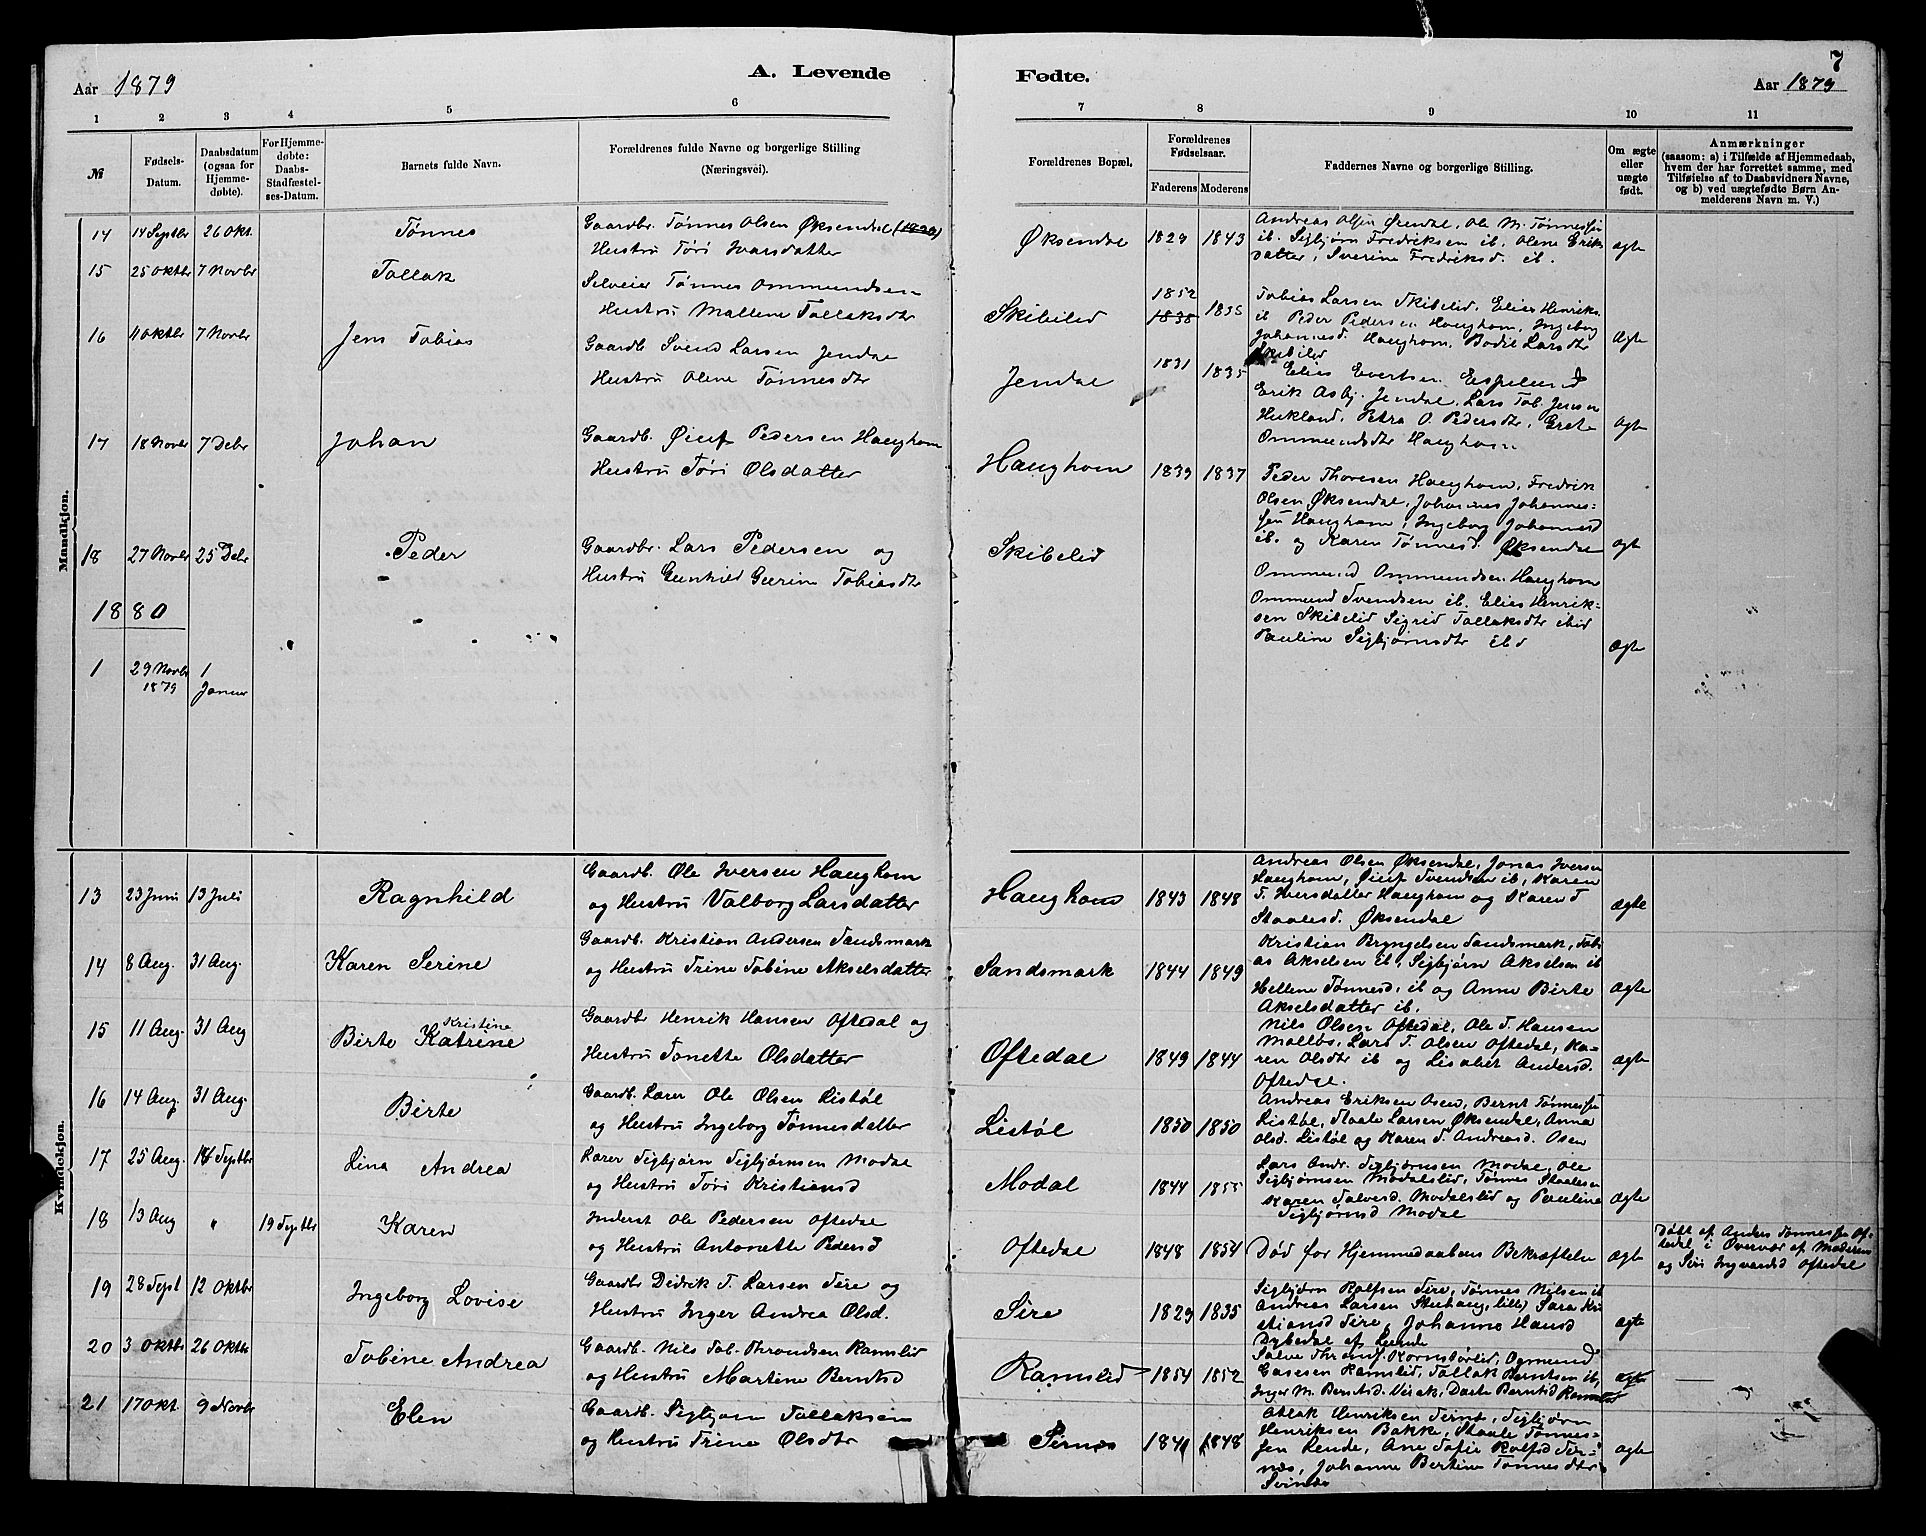 7
Aar 1879
A. Levende
Fødte.
Aar 1879
1 2 3 4 5 6 7 8 9 10 11
№
Fødsels-
Datum.
Daabsdatum
(ogsaa for
Hjemme-
døbte).
For Hjemme-
døbte:
Daabs-
Stadfæstel-
ses-Datum.
Barnets fulde Navn.
Forældrenes fulde Navne og borgerlige Stilling
(Næringsvei).
Forældrenes Bopæl.
Forældrenes
Fødselsaar.
Faderens Moderens
Faddernes Navne og borgerlige Stilling.
Om ægte
eller
uægte
født.
Anmærkninger
(saasom: a) i Tilfælde af Hjemmedaab,
hvem der har forrettet samme, med
Tilføielse af to Daabsvidners Navne,
og b) ved uægtefødte Børn An-
melderens Navn m. V.)
Mandkjøn.
14 14 Septbr 26 Okt. Tønnes
Gaardbr. Tønnes Olsen Øksendal
Hustru Tøri Ivarsdatter
Øksendal 1829 1843
Andreas Olsen Øxendal, Ole M. Tønnessen
ib. Sigbjørn Fredriksen ib, Olene Eriks
datter, Sverine Fredriksd. ib.
ægte
15 25 Oktbr 7 Novbr Tallak
Selveier Tønnes Ommundsen
Hustru Mallene Tallaksdtr
Skibelid 1852 1838 1835
Tobias Larsen Skibelid, Elias Henriks.
ib Peder Pedersen Haughom, Ingeborg
Johannesd. Haughom, Bodil Larsdtr
Skibelid
ægte
16 11 Oktbr 7 Novbr Jens Tobias
Gaardb. Svend Larsen Jendal
Hustru Olene Tønnesdtr
Jendal 1831 1835
Elias Evertsen Espelund
Erik Asbj. Jendal, Lars Tob. Jensen
Hukland, Petra O. Pedersdtr, Grete
Ommundsdtr Haughom
ægte
17 18 Novbr 7 Debr Johan
Gaardb. Øiuf Pedersen Haughom
Hustru Tøri Olsdatter
Haughom 1839 1837
Peder Thoresen Haughom, Fredrik
Olsen Øksendal, Johannes Johannes-
sen Haughom, Ingeborg Johannesd
ib. og Karen Tønnesd. Øksendal
ægte
18 27 Novbr 25 Debr Peder
Gaardbr. Lars Pedersen og
Hustru Gunhild Gurine Tobiasdtr
Skibelid
Ommund Ommundsen Haughom
Ommund Svendsen ib. Elias Henrik-
sen Skibelid Sigrid Tallaksdtr ibid
Pauline Sigbjørnsdtr ibd
ægte
1880
1 29 Novbr 1879 1 Januar
Kvindekjøn.
13 23 Juni 13 Juli Ragnhild
Gaardb. Ole Iversen Haughom
og Hustru Valborg Larsdatter
Haughom 1843 1848
Andreas Olsen Øksendal, Jonas Iversen
Haughom, Øiuf Svendsen ib, Karen
T. Iversdatter Haughom og Karen T
Staalesd. Øksendal
ægte
14 8 Aug. 31 Aug. Karen Serine
Gaardb. Kristian Andersen Sandsmark
og Hustru Trine Tobine Akselsdatter
Sandsmark 1844 1849
Kristian Bryngelsen Sandsmark, Tobi
as Akselsen ib, Sigbjørn Akselsen ib
Hellene Tønnesd. ib og Anne Birte
Akselsdatter ib.
ægte
15 11 Aug. 31 Aug Birte Kristine Katrine
Gaardbr Henrik Hansen Oftedal og
Hustru Tonette Olsdatter
Oftedal 1849 1844
Nils Olsen Oftedal, Ole T. Hansen
Mollbo, Lars T. Olsen Oftedal, Ka-
ren Olsdtr ib og Lisabet Andersd.
Oftedal.
ægte
16 14 Aug. 31 Aug. Birte
Gaardb. Lærer Ole Olsen Listøl
og Hustru Ingeborg Tønnesdatter
Listøl 1850 1850
Andreas Eriksen Osen, Bernt Tønnessen
Listøl, Staale Larsen Øksendal, Anna
Olsd. Listøl og Karen T. Andreasd. Osen
17 25 Aug. 14 Septbr Lina Andrea
Lærer Sigbjørn Sigbjørnsen Modal
og Hustru Tøri Kristiansd
Modal 1844 1855
Lars Andr. Sigbjørnsen Modal, Ole
Sigbjørnsen Modalslid, Tønnes Staalesen
Karen Salvesd. Modalslid og Pauline
Sigbjørnsd Modal
ægte
18 13 Aug " 19 Septbr Karen
Inderst Ole Pedersen Oftedal
og Hustru Antonette Pedersd
Oftedal 1848 1854
Død før Hjemmedaabens Bekræftelse
ægte
Døbt af Anders Tønnessen Of-
tedal i Overvær af Moderen
og Siri Ingvarsd Oftedal
19 28 Sept 12 Oktbr Ingeborg Lovise
Gaardbr Didrik T. Larsen Sire og
Hustru Inger Andrea Olsd.
Sire 1829 1835
Sigbjørn Rolfsen Sire, Tønnes Nilsen ib
Andreas Larsen Stuhaug, lille Sara Kri
stiansd Sire, Johanne Hansd
Dybedal af Lunde
ægte
20 3 Oktbr 26 Oktbr Tobine Andrea
Gaardb. Nils Tob. Throndsen Ramslid
og Hustru Martine Berntsd
Ramslid 1854 1852
Salve Thronds. Kornstølid, Osmund
Gasesen Ramslid, Tallak Berntsen ib,
Inger M. Berntsd. Virak, Dorte Berntsd Ramslid
ægte
21 17 Okt. 9 Novbr Elen
Gaardb. Sigbjørn Tallaksen
og Hustru Trine Olsdtr
Sirnes 1841 1848
Atlak Henriksen Sirnes, Sigbjørn
Henriksen Bakke, Staale Tønnes-
sen Rende, Ane Sofie Rolfsd Sir-
næs, Johanne Bertine Tønnesdtr
Svindal
ægte